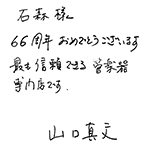 石森 様
66周年 おめでとうございます
最も信頼できる 管楽器
専門店です.
山口真文